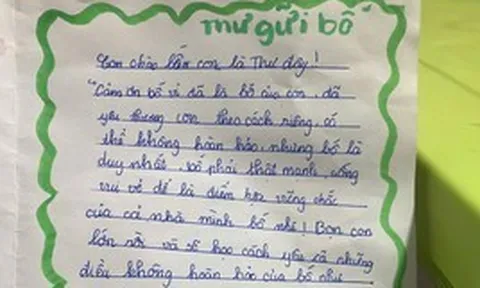 Thư gửi bố
Con chào bố con là Thư đây!
"Cảm ơn bố vì đã là bố của con, đã
yêu thương con theo cách riêng, có
thể không hoàn hảo, nhưng bố là
duy nhất. Bố phải thật mạnh, sống
vui vẻ để là điểm tựa vững chắc
của cả nhà mình bố nhé! Bọn con
lớn rồi và sẽ học cách yêu cả những
điều không hoàn hảo của bố như